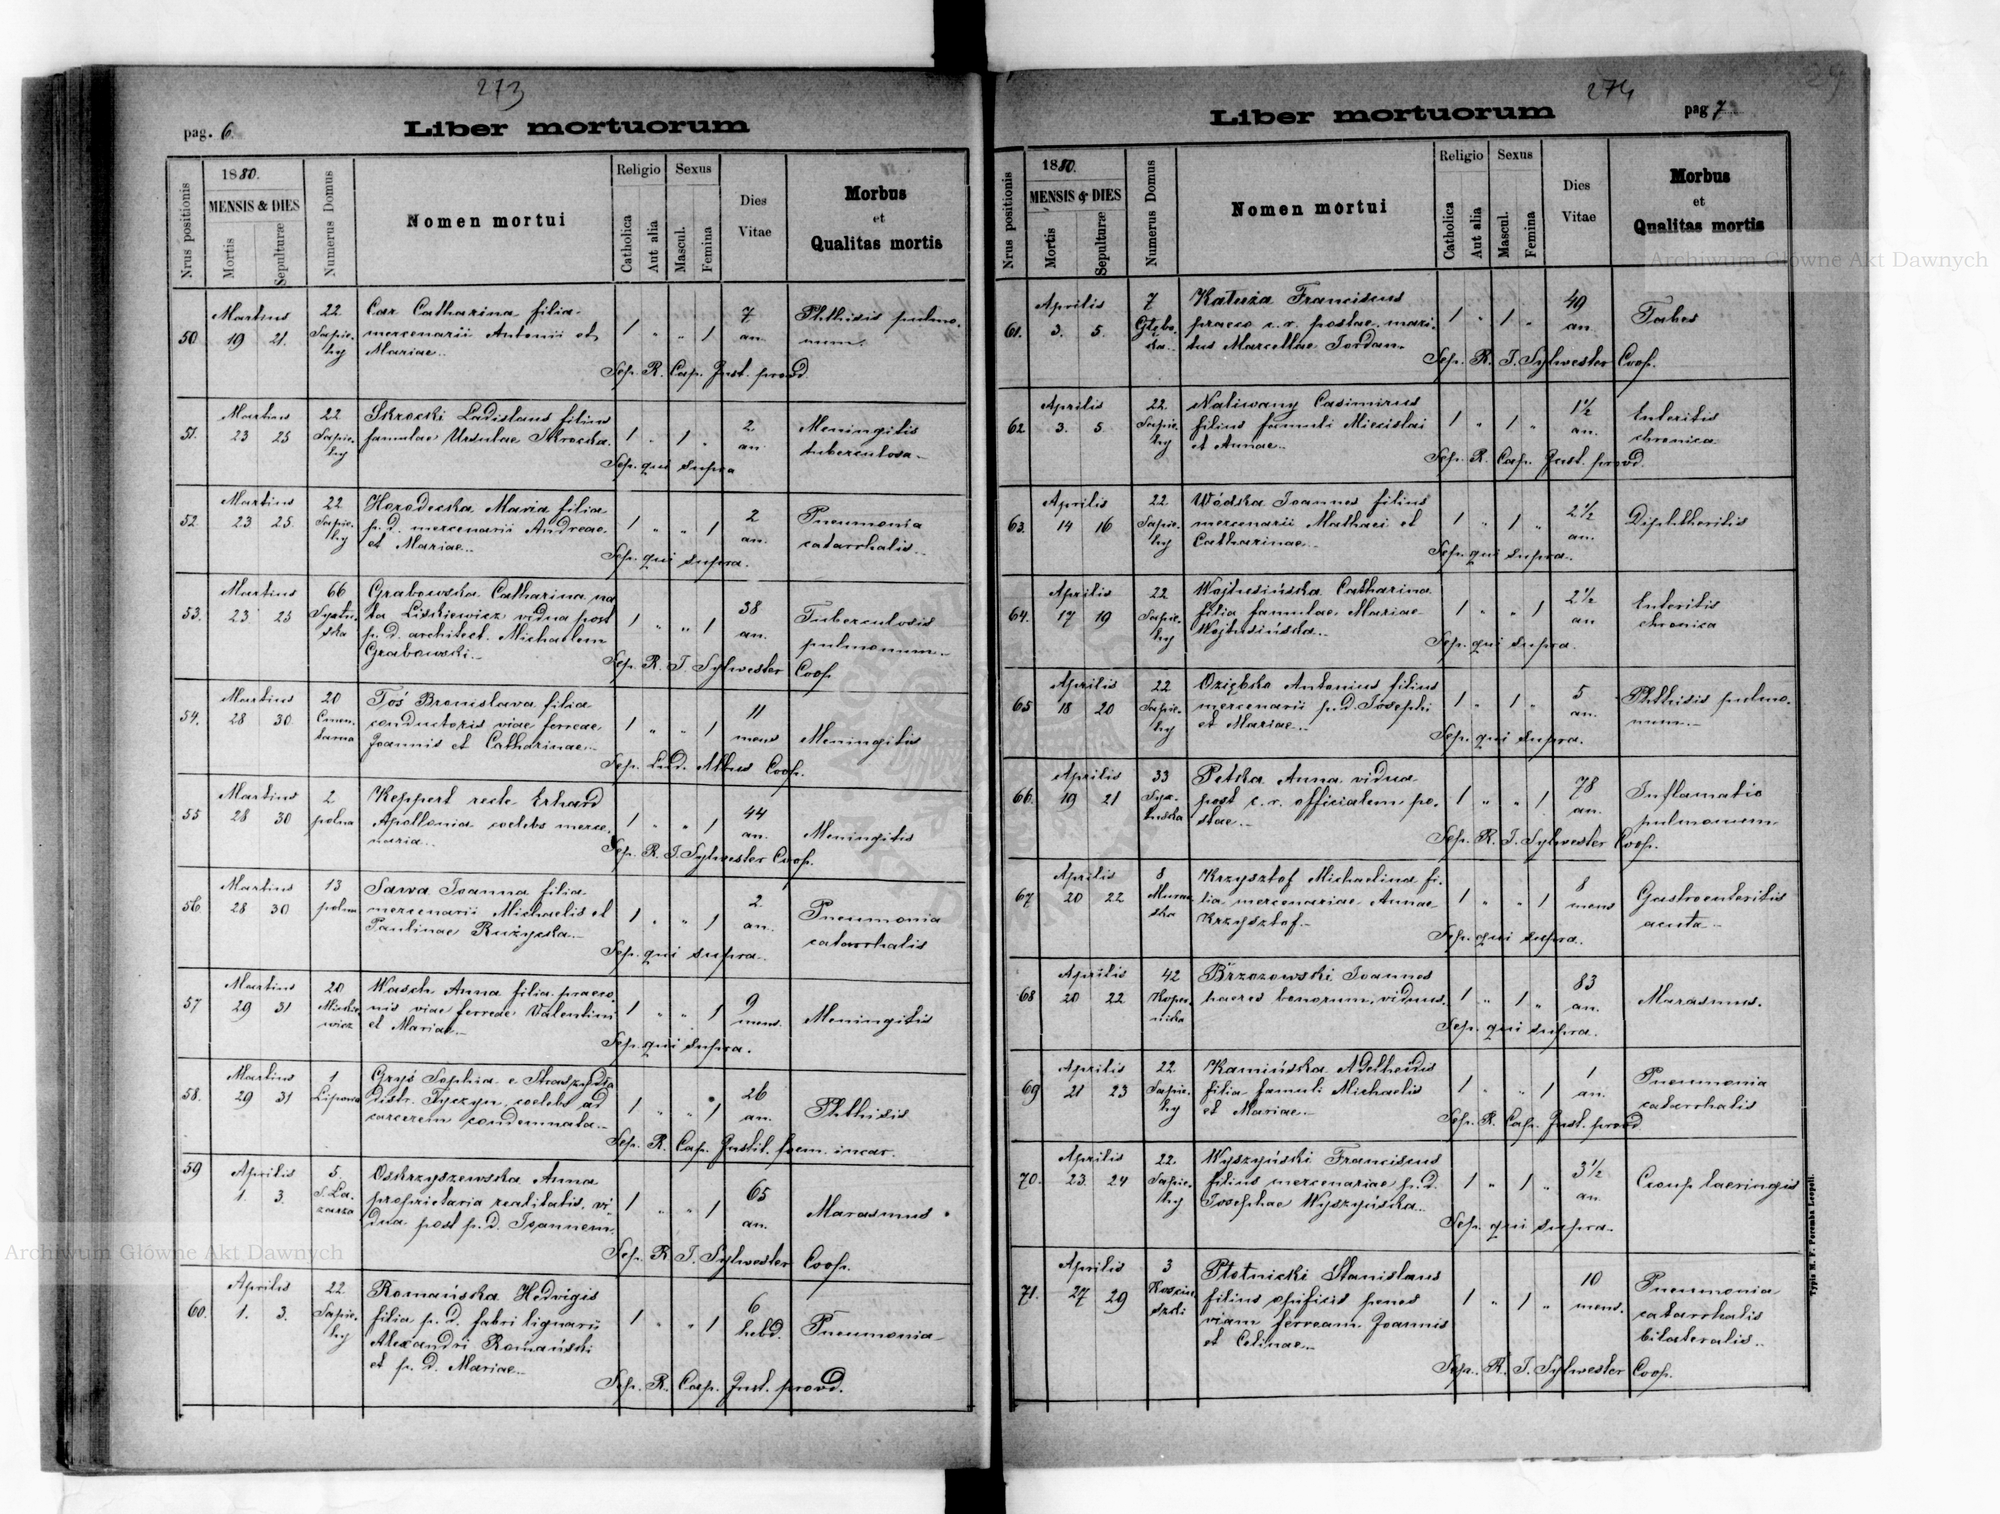 273
pag. 6.
Liber mortuorum
Nrus positionis
1880.
MENSIS & DIES
Mortis
Sepulturæ
Numerus Domus
Nomen mortui
Religio
Catholica
Aut alia
Sexus
Mascul.
Femina
Dies
Vitae
Morbus
et
Qualitas mortis
50
Martius
19 21.
22
Sapie-
hy
Car Catharina filia
mercenarii Antonii et
Mariae
1 " " 1
7
an.
Phthisis pulmo-
num.
Sep. R. Cap. Inst. provd.
51.
Martius
23 25
22
Sapie-
hy
Skrocki Ladislaus filius
famulae Ursulae Skrocka.
1 " 1 "
2
an
Meningitis
tuberculosa
Sep. qui supra
52
Martius
23 25.
22
Sapie-
hy
Horodecka Maria filia
p. d. mercenarii Andreae
et Mariae
1 " " 1
2
an.
Pneumonia
catarrhalis
Sep. qui supra.
53.
Martius
23 25
66
Systu-
ska
Grabowska Catharina na
ta Liskiewicz vidua post
p. d. architect. Michaelem
Grabowski
1 " " 1
38
an.
Tuberculosis
pulmonum
Sep. R. T. Sylwester Coop
54.
Martius
28 30
20
Cmen-
tarna
Toś Bronislava filia
conductoris viae ferreae
Joannis et Catharinae
1 " " 1
11
mens
Meningitis
Sep. Lud. Albus Coop.
55
Martius
28 30
2
polna
Keppert recte Erhard
Apollonia coelebs merce-
naria
1 " " 1
44
an.
Meningitis
Sep. R. T. Sylwester Coop.
56
Martius
28 30
13
polna
Sawa Joanna filia
mercenarii Michaelis et
Paulinae Rużycka
1 " " 1
2
an.
Pneumonia
catarrhalis
Sep. qui supra.
57
Martius
29 31
20
Mickie-
wicz
Wasch Anna filia praeco-
nis viae ferreae Valentini
et Mariae
1 " " 1
9
mens.
Meningitis
Sep. qui supra.
58.
Martius
29 31
1
Lipowa
Gryś Sophia e Straszydla
distr. Tyczyn, coelebs ad
carcerem condemnata
1 " " 1
26
an.
Phthisis
Sep. R. Cap. Instit. foem. incar.
59
Aprilis
1. 3.
5.
S. La-
zarza
Oskrzyszewska Anna
proprietaria realitatis, vi-
dua post p. d. Joannem
1 " " 1
65
an.
Marasmus
Sep. R. T. Sylwester Coop.
60.
Aprilis
1. 3.
22
Sapie-
hy
Romańska Hedvigis
filia p. d. fabri lignarii
Alexandri Romański
et p. d. Mariae
1 " " 1
6
hebd.
Pneumonia
Sep. R. Cap. Inst. provd.
274
Liber mortuorum
pag 7
Nrus positionis
1880.
MENSIS & DIES
Mortis
Sepulturæ
Numerus Domus
Nomen mortui
Religio
Catholica
Aut alia
Sexus
Mascul.
Femina
Dies
Vitae
Morbus
et
Qualitas mortis
61.
Aprilis
3. 5.
7
Głębo-
ka
Katuża Franciscus
praeco c. r. postae, mari-
tus Marcellae Jordan
1 " 1 "
49
an.
Tabes
Sep. R. T. Sylwester Coop.
62
Aprilis
3. 5.
22.
Sapie-
hy
Naliwany Casimirus
filius famuli Miecislai
et Annae
1 " 1 "
1½
an.
Enteritis
chronica
Sep. R. Cap. Inst. provd.
63.
Aprilis
14 16
22
Sapie-
hy
Wódska Joannes filius
mercenarii Mathaei et
Catharinae
1 " 1 "
2½
an.
Diphtheritis
Sep. qui supra.
64.
Aprilis
17 19
22
Sapie-
hy
Wojtusińska Catharina
filia famulae Mariae
Wojtusińska
1 " " 1
2½
an
Enteritis
chronica
Sep. qui supra.
65
Aprilis
18 20
22
Sapie-
hy
Oziębko Antonius filius
mercenarii p. d. Josephi
et Mariae
1 " 1 "
5
an.
Phthisis pulmo-
num
Sep. qui supra.
66.
Aprilis
19 21
33
Syx-
tuska
Petska Anna vidua
post c. r. officialem po-
stae
1 " " 1
78
an.
Inflamatio
pulmonum
Sep. R. T. Sylwester Coop.
67
Aprilis
20 22
8
Murar-
ska
Krzysztof Michaelina fi-
lia mercenariae Annae
Krzysztof
1 " " 1
8
mens
Gastroenteritis
acuta
Sep. qui supra.
68
Aprilis
20 22
42
Koper-
nika
Brzozowski Joannes
haeres bonorum, viduus.
1 " 1 "
83
an.
Marasmus.
Sep. qui supra.
69
Aprilis
21 23
22
Sapie-
hy
Kamińska Adelheidis
filia famuli Michaelis
et Mariae
1 " " 1
1
an.
Pneumonia
catarrhalis
Sep. R. Cap. Inst. provd
70.
Aprilis
23. 24
22.
Sapie-
hy
Wyszyński Franciscus
filius mercenariae p. d.
Josephae Wyszyńska
1 " 1 "
3½
an.
Croup laeringis
Sep. qui supra.
71.
Aprilis
27 29
3
Koscius-
szki
Płotnicki Stanislaus
filius opificis penes
viam ferream Joannis
et Celinae
1 " 1 "
10
mens.
Pneumonia
catarrhalis
bilateralis
Sep. R. T. Sylwester Coop.
Typis M. F. Poremba Leopoli.
Archiwum Główne Akt Dawnych
Archiwum Główne Akt Dawnych